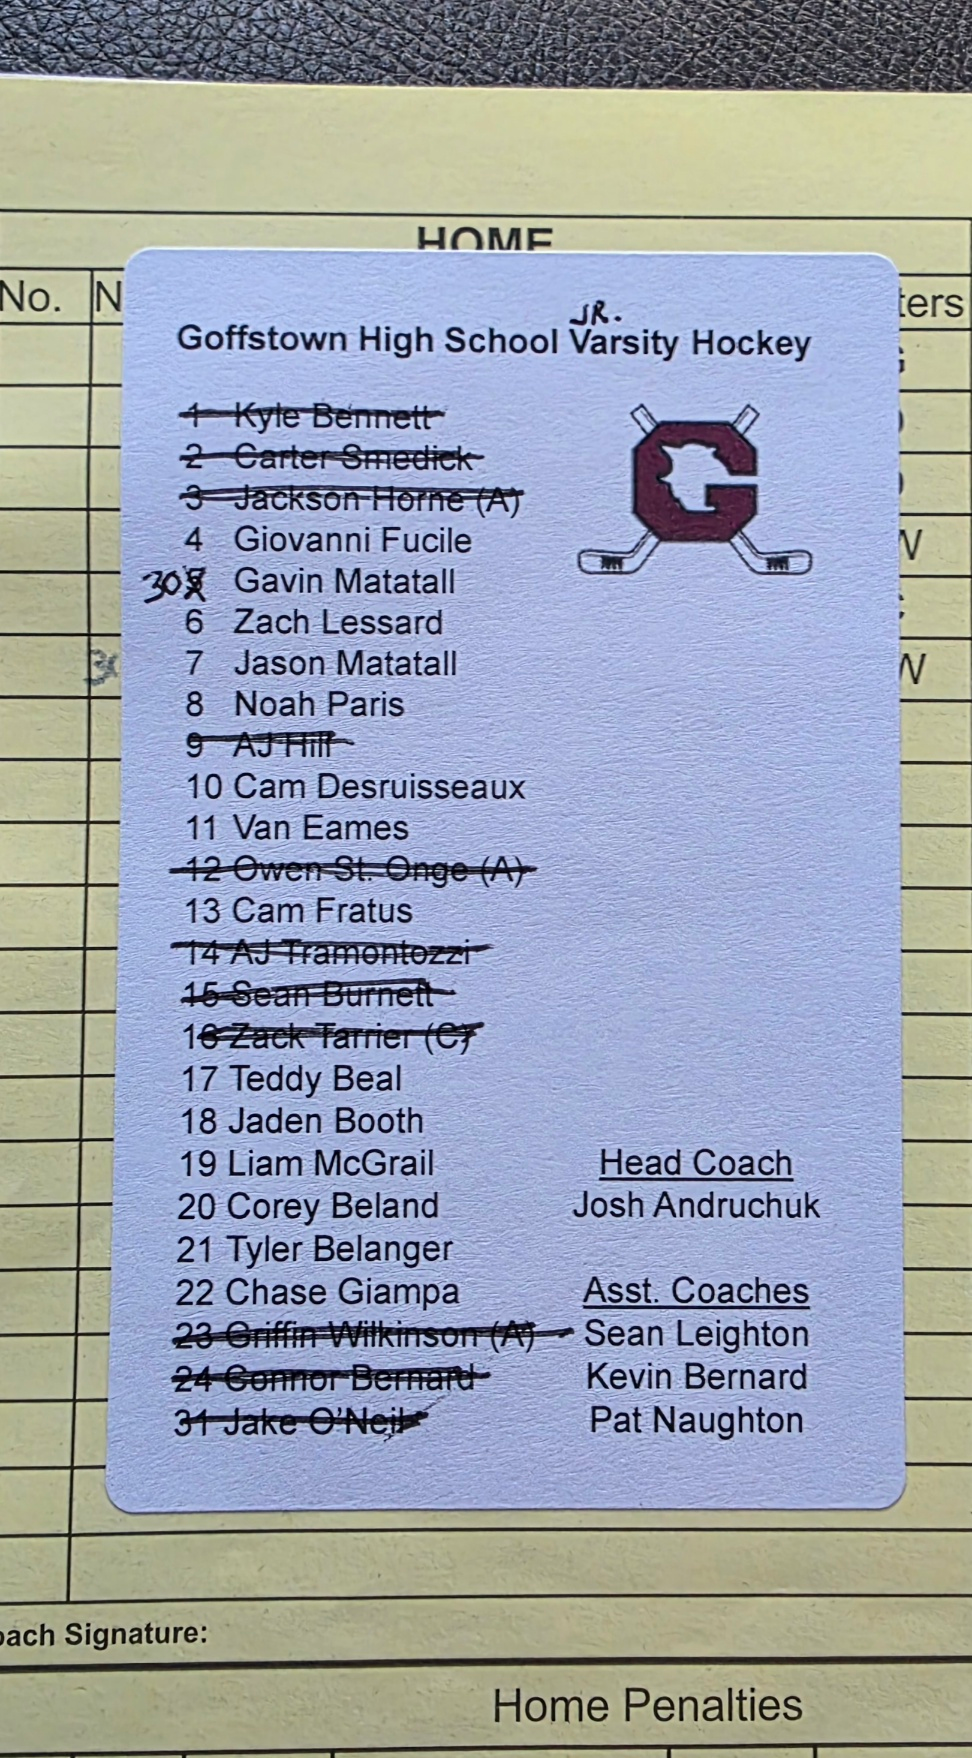 HOME
No. N
ters
JR.
Goffstown High School Varsity Hockey
1 Kyle Bennett
2 Carter Smedick
3 Jackson Horne (A)
4 Giovanni Fucile
30 5 Gavin Matatall
6 Zach Lessard
7 Jason Matatall
W
8 Noah Paris
9 AJ Hill
10 Cam Desruisseaux
11 Van Eames
12 Owen St. Onge (A)
13 Cam Fratus
14 AJ Tramontozzi
15 Sean Burnett
16 Zack Tarrier (C)
17 Teddy Beal
18 Jaden Booth
19 Liam McGrail
20 Corey Beland
21 Tyler Belanger
22 Chase Giampa
23 Griffin Wilkinson (A)
24 Connor Bernard
31 Jake O'Neil
G
Head Coach
Josh Andruchuk
Asst. Coaches
Sean Leighton
Kevin Bernard
Pat Naughton
oach Signature:
Home Penalties